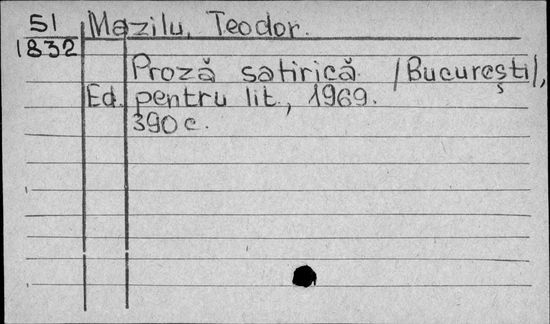 51 Mazilu, Teodor.
1832
Proză satirică. /București/,
Ed. pentru lit., 1969.
390 c.